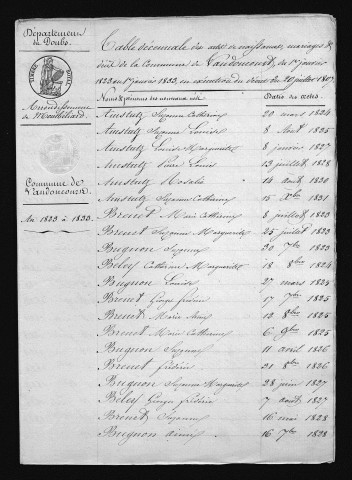 Département
du Doubs.
TIMBRE ROYAL
Arrondissement
de Montbéliard
Commune de
Vandoncourt
An 1823 à 1833.
Table décennale des actes de naissances, mariages &
décès de la Commune de Vandoncourt, du 1er janvier
1823 au 1er janvier 1833, en exécution du décret du 20 juillet 1807
Noms & prénoms des nouveaux nés
Dates des actes.
Amstutz Suzanne Catherine 20 mars 1824
Amstutz Suzanne Louise 8 Août 1825
Amstutz Louise Marguerite 8 janvier 1827
Amstutz Pierre Louis 13 juillet 1828
Amstutz Rosalie 14 août 1830
Amstutz Suzanne Catherine 15 Xbre 1831
Brenet Marie Catherine 8 juillet 1823
Brenet Suzanne Marguerite 25 juillet 1823
Bugnon Suzanne 30 7bre 1823
Beley Catherine Marguerite 18 8bre 1824
Bugnon Louise 27 mars 1824
Brenet George frédéric 17 7bre 1825
Brenet Marie 12 8bre 1825
Brenet Marie Catherine 6 9bre 1825
Bugnon Suzanne 11 avril 1826
Brenet frédéric 21 8bre 1826
Bugnon Suzanne Marguerite 28 juin 1827
Beley George frédéric 7 août 1827
Brenet Suzanne 16 mai 1828
Bugnon 16 7bre 1828